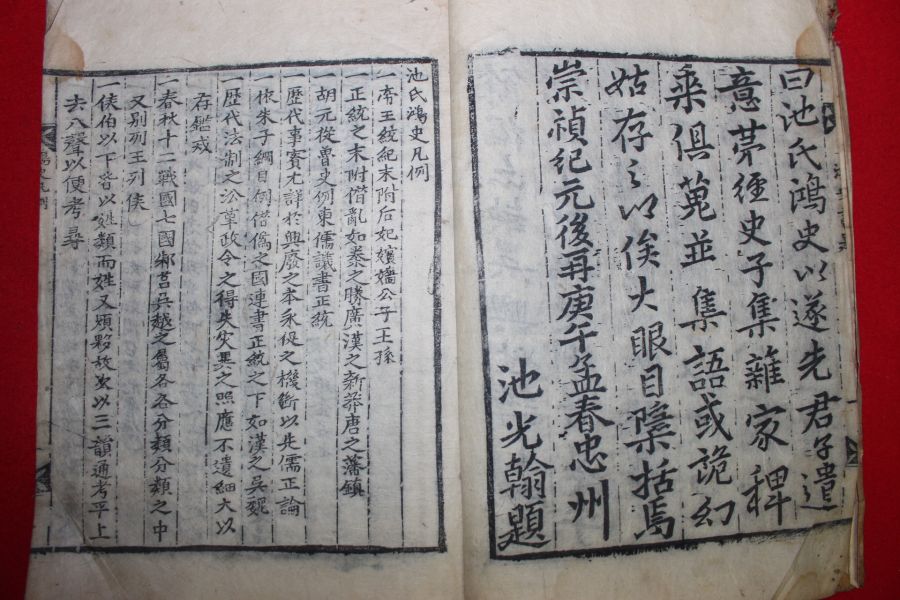 曰池氏鴻史以遂先君子遺
意苐經史子集雜家稗
乘俱蒐並集語或詭幻
姑存之以俟大眼目檃括焉
崇禎紀元後再庚午孟春忠州
池光翰題
池氏鴻史凡例
一帝王紋紀末附后妃嬪嬙公子王孫
一正統之末附僭亂如秦之勝廣漢之新莽唐之藩鎮
一胡元從曾史例東儒議書正統
一歷代事實尤詳於興廢之本永促之機斷以先儒正論
一依朱子綱目例僭僞之國連書正統之下如漢之吳魏
一歷代法制之沿革政令之得失灾異之照應不遺細大以
存鑑戒
一春秋十二戰國七國鄒莒吳越之屬各各分類分類之中
又別列王列侯
一侯伯以下皆以姓類而姓又煩夥故以三韻通考平上
去入聲以便考尋